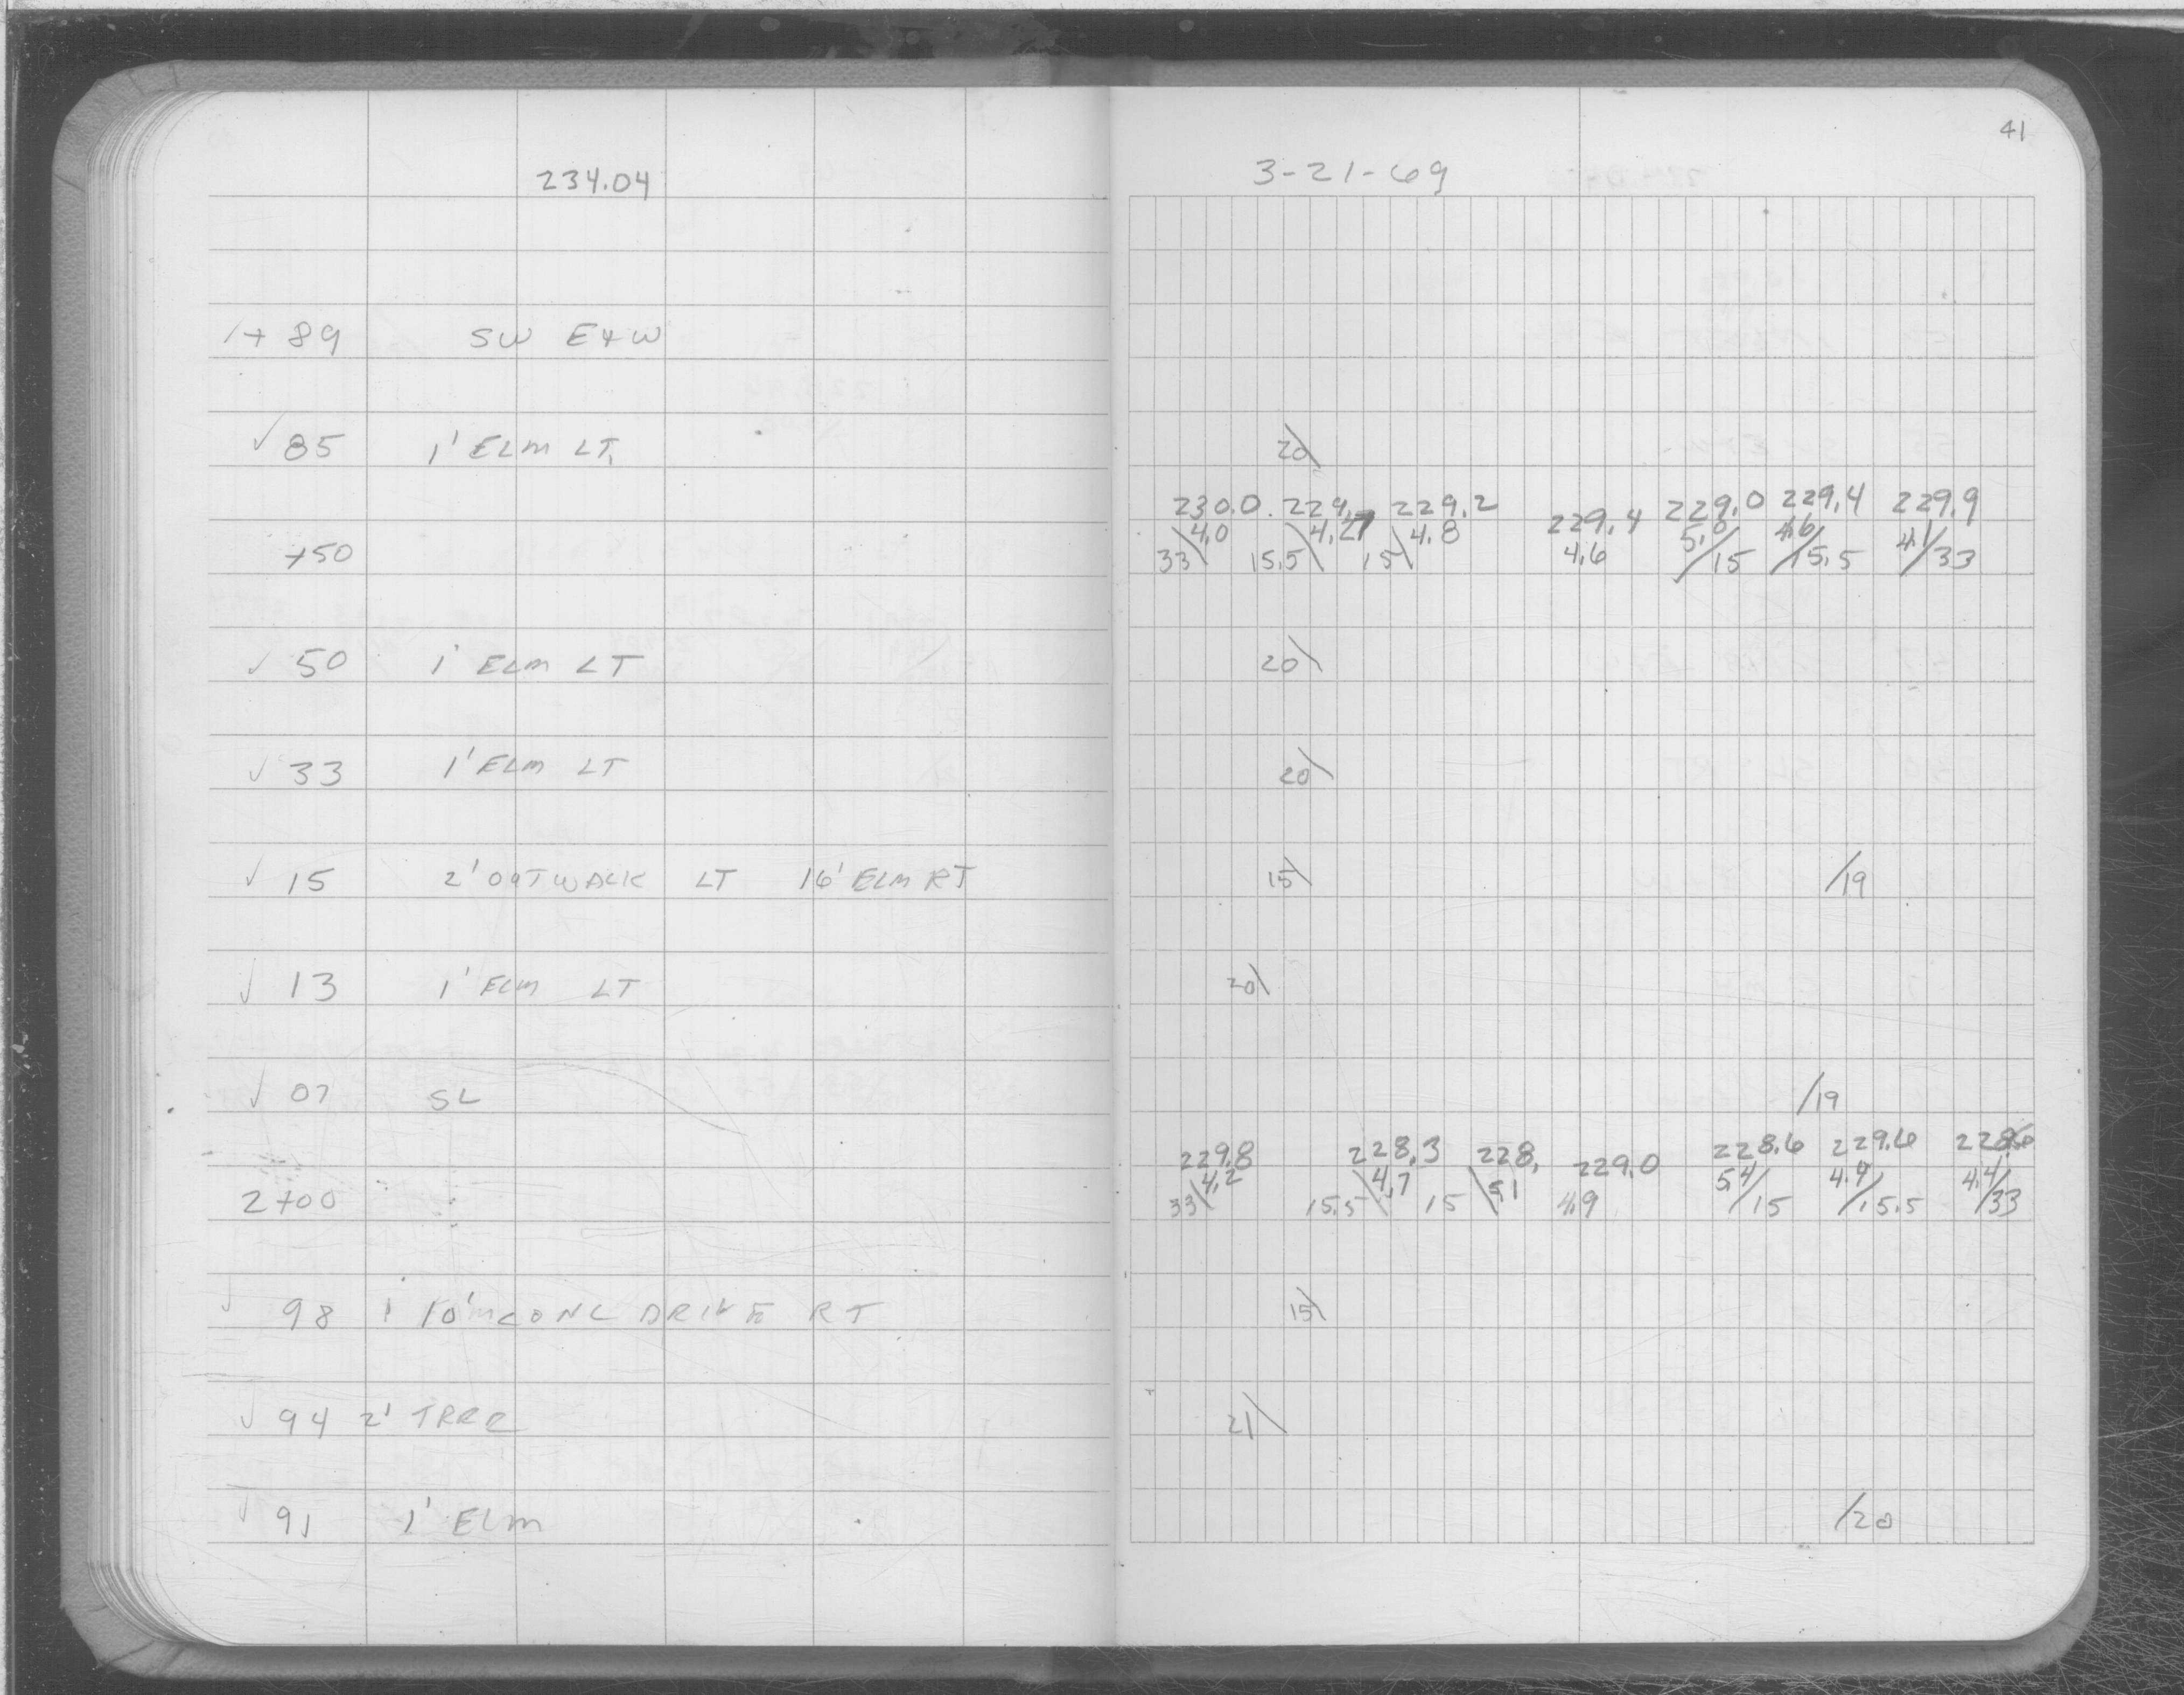 41
234.04 3-21-69
1+89 SW E+W
✓ 85 1' ELM LT. 20\
230.0 229.7 229.2 229.4 229.0 229.4 229.9
+50 33\4.0 15.5\4.2 15\4.8 4.6 5.0/15 4.6/15.5 4.1/33
✓ 50 1' ELM LT 20\
✓ 33 1' ELM LT 20\
✓ 15 2' WALK LT 16' ELM RT 15\ /19
✓ 13 1' ELM LT 20\
✓ 07 SL /19
229.8 228.3 228. 229.0 228.6 229.6
2+00 33\4.2 15.5\4.7 15\5.1 4.9 5.4/15 4.4/15.5 4.4/33
✓ 98 10' CONC DRIVE RT 15\
✓ 94 2' TREE 21\
✓ 91 1' ELM /20